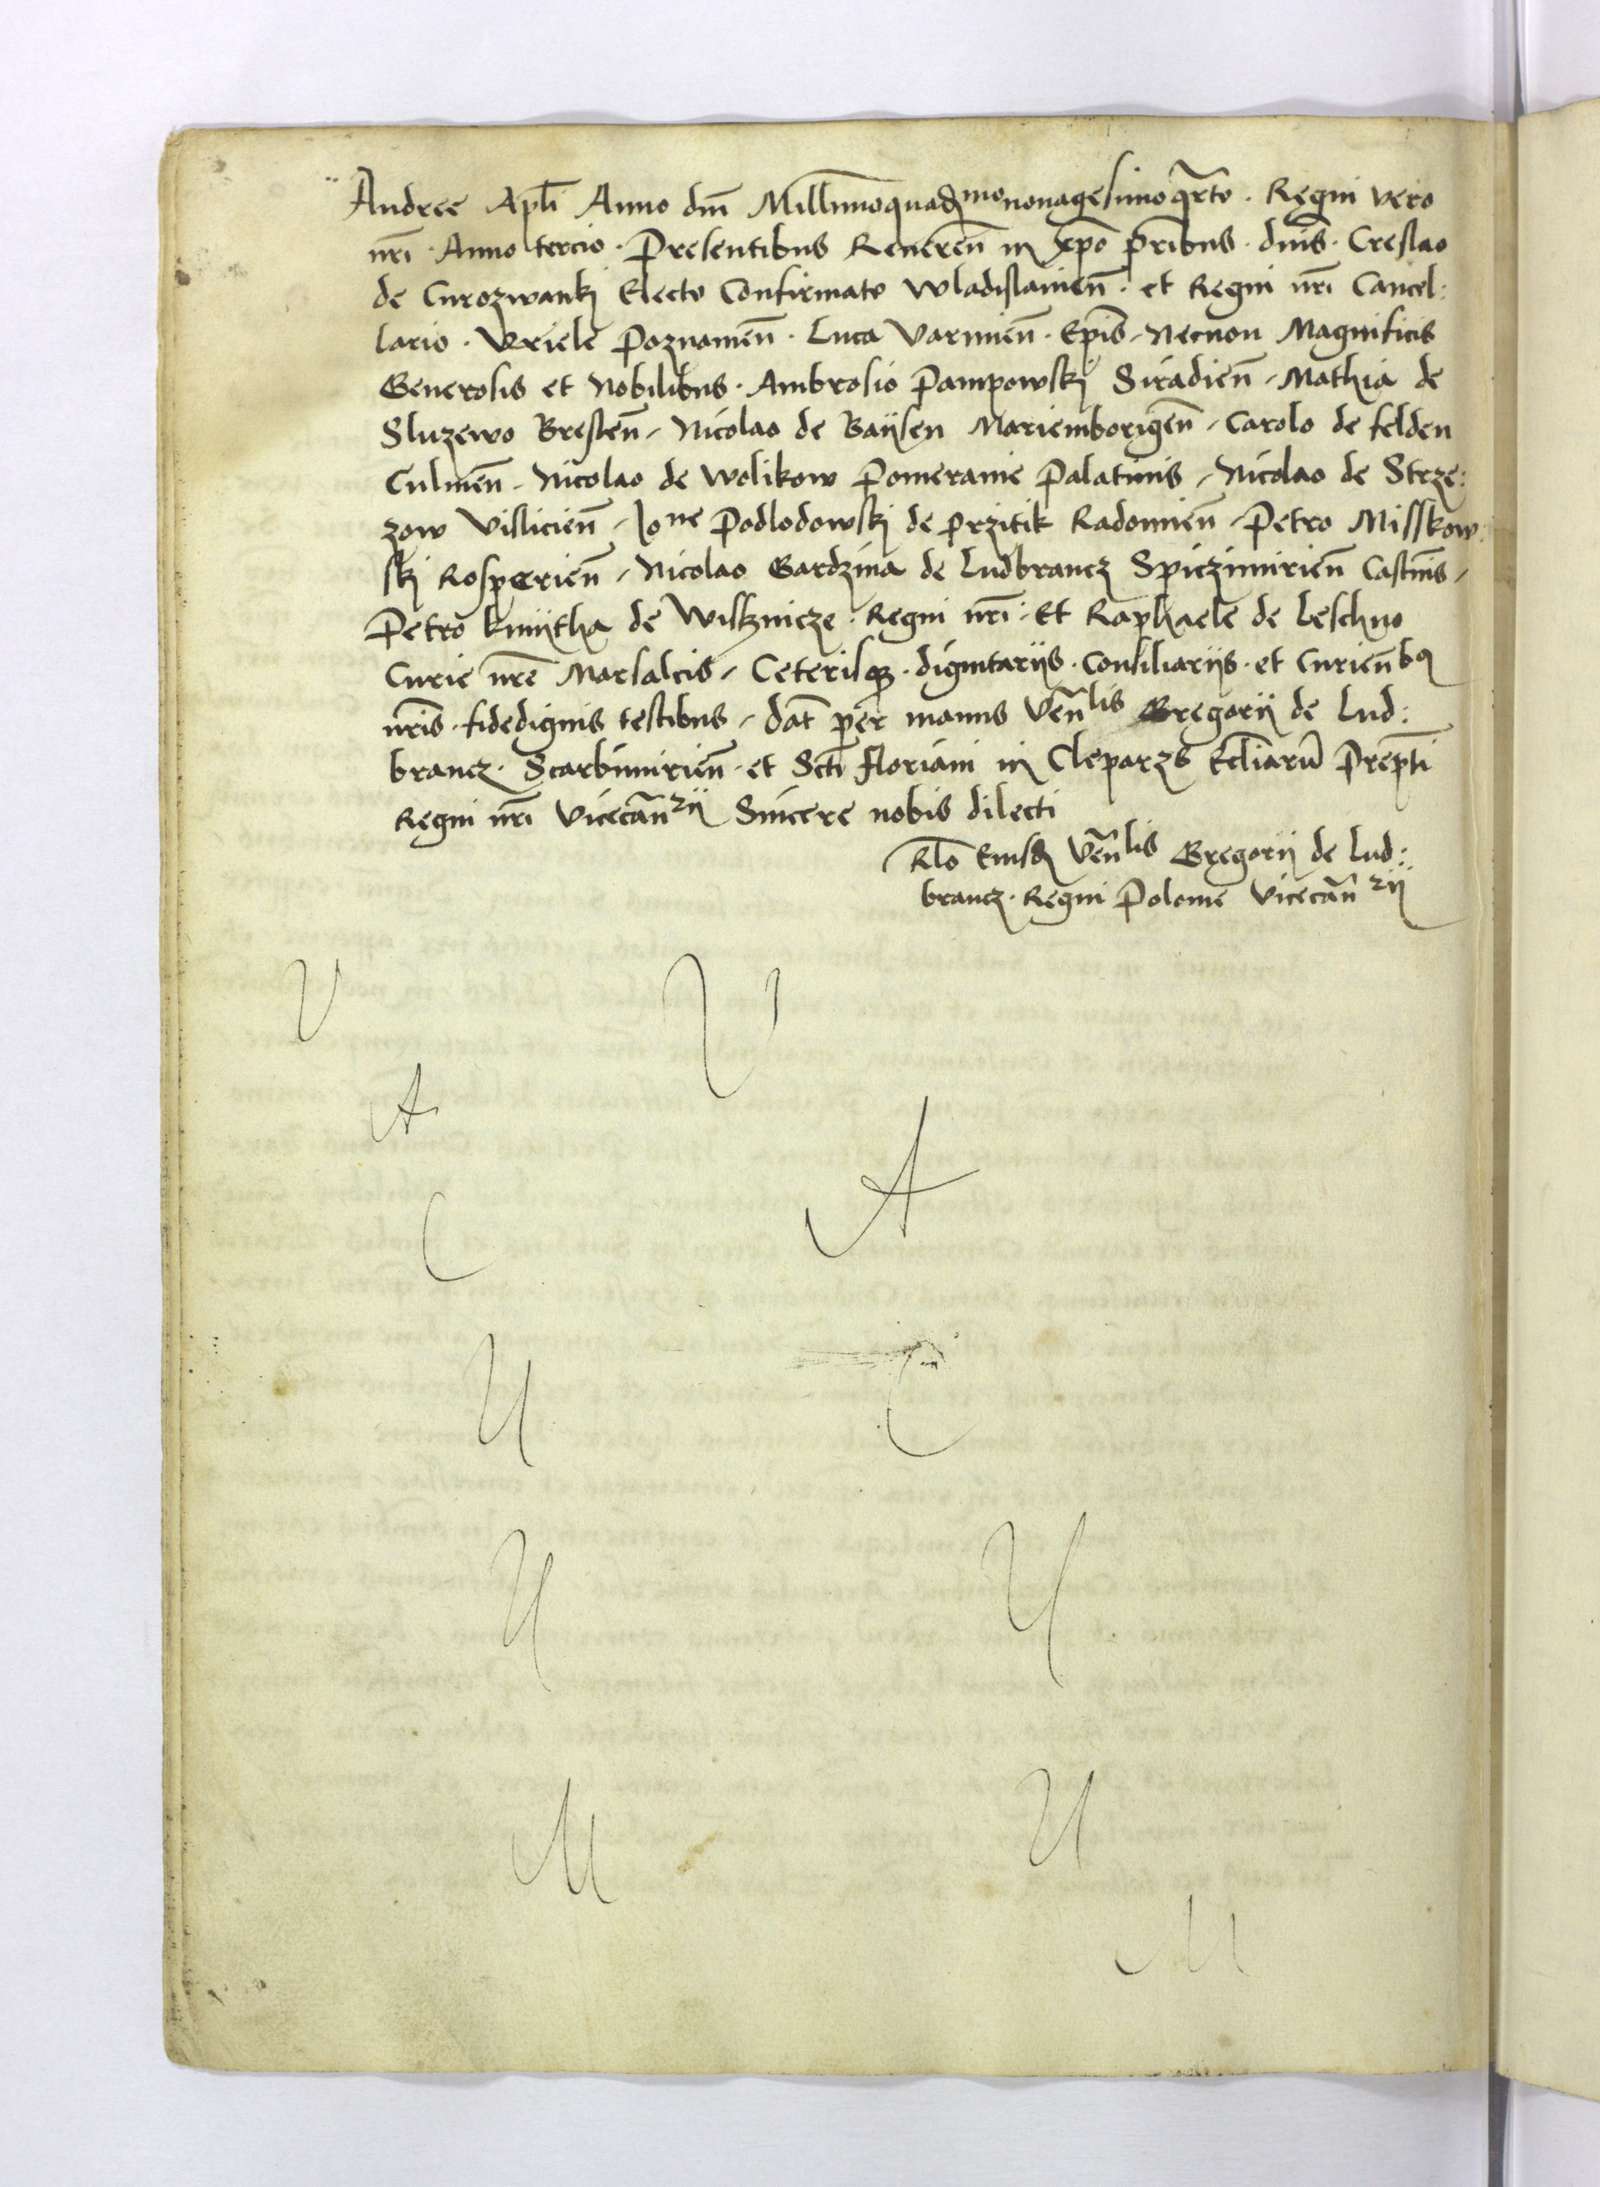 Andree Apli Anno dni Millimoquadmo nonagesimoqrto . Regni vero
nri . Anno tercio . Presentibus Reueren in xpo pribus . dnis . Creslao
de Curozwanki Electo Confirmato Wladislauien . et Regni nri Cancel:
lario . Vriele Poznanien . Luca Varmien . Epis - Necnon Magnificis
Generosis et Nobilibus . Ambrosio Pampowski Siradien - Mathia de
Sluzewo Bresten - Nicolao de Baysen Mariemborgen - Carolo de felden
Culmen - Nicolao de Wolikow Pomeranie Palatinis - Nicolao de Strze:
zow Vislicien - Jone Podlodowski de Przitik Radomien - Petro Misskow:
ski Rosperien - Nicolao Gardzina de Ludbrancz Spiczimirien Castnis -
Petro kmytha de Wisznicze . Regni nri . Et Raphaele de Leschno
Curie nre Marsalcis - Ceterisqz . dignitariis . Consiliariis . et Curienbq
nris . fidedignis testibus - dat per manus venlis Gregorii de Lud:
brancz . Scarbimirien . et Scti floriani in Cleparzs Ecliaru Prepti
Regni nri Vicecanrii Sincere nobis dilecti
Rlo Eiusd venlis Gregorii de Lud:
brancz . Regni Polonie Vicecanrii
V V
A
A
C
U C
U U
M U
M